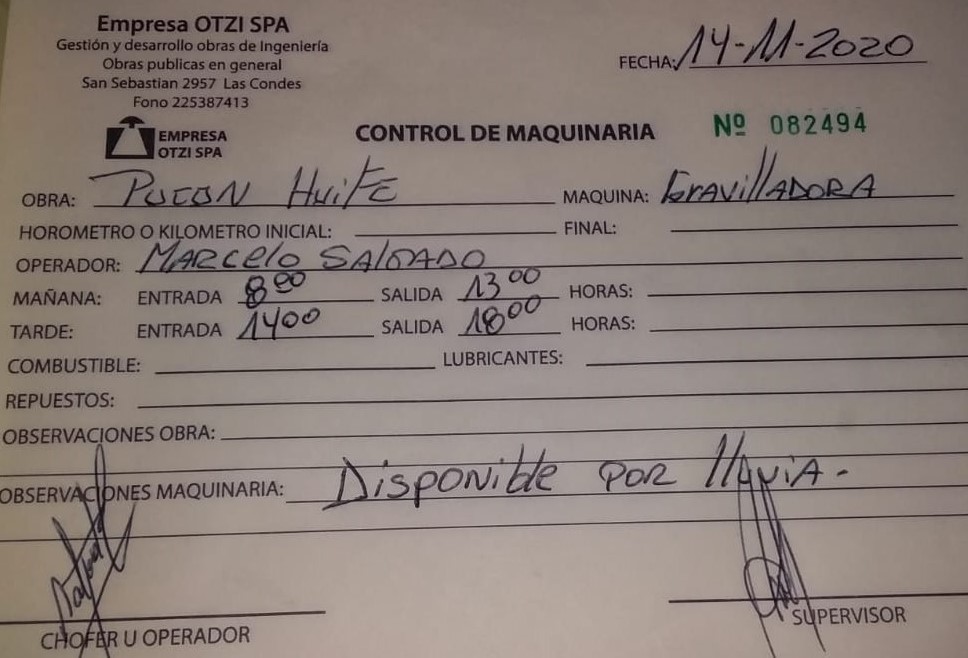 Empresa OTZI SPA
Gestión y desarrollo obras de Ingeniería
Obras publicas en general
San Sebastian 2957 Las Condes
Fono 225387413
FECHA: 14-11-2020
EMPRESA
OTZI SPA
CONTROL DE MAQUINARIA Nº 082494
OBRA: PUCON HUIFE MAQUINA: GravillADORA
HOROMETRO O KILOMETRO INICIAL: FINAL:
OPERADOR: MARCElO SALGADO
MAÑANA: ENTRADA 8 00 SALIDA 13 00 HORAS:
TARDE: ENTRADA 1400 SALIDA 18 00 HORAS:
COMBUSTIBLE: LUBRICANTES:
REPUESTOS:
OBSERVACIONES OBRA:
OBSERVACIONES MAQUINARIA: DISPONIble POR lluviA-
CHOFER U OPERADOR SUPERVISOR